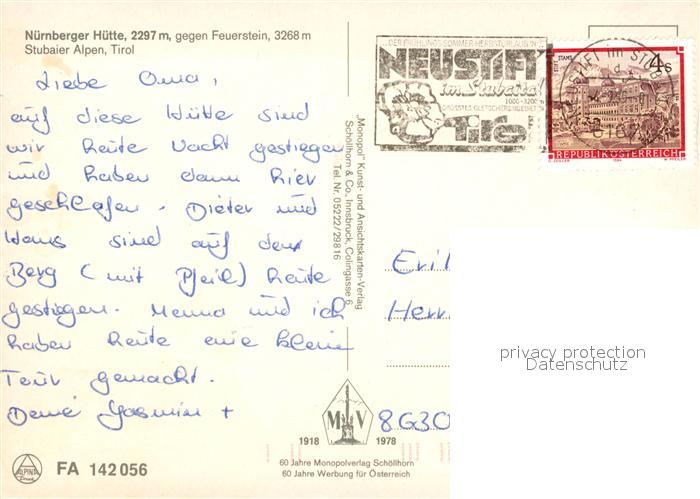 Nürnberger Hütte, 2297 m, gegen Feuerstein, 3268 m
Stubaier Alpen, Tirol
Liebe Oma,
auf diese Hütte sind
wir heute Nacht gestiegen
und haben dann hier
geschlafen. Dieter und
Hans sind auf den
Berg (mit Pfeil) heute
gestiegen. Menna und ich
haben heute eine kleine
Tour gemacht.
Deine Yasmin +
FA 142 056
„Monopol" Kunst- und Ansichtskarten-Verlag
Schöllhorn & Co. Innsbruck, Colingasse 6
Tel. Nr. 05222/29816
NEUSTIFT
im Stubaital
1000-3200
GRÖSSTES GLETSCHERSKIGEBIET
Tirol
STIFT STAMS
4 S
REPUBLIK ÖSTERREICH
O. ZEILLER 1984 W. PFEILER
Herr
privacy protection
Datenschutz
8630
M V
1918 1978
60 Jahre Monopolverlag Schöllhorn
60 Jahre Werbung für Österreich